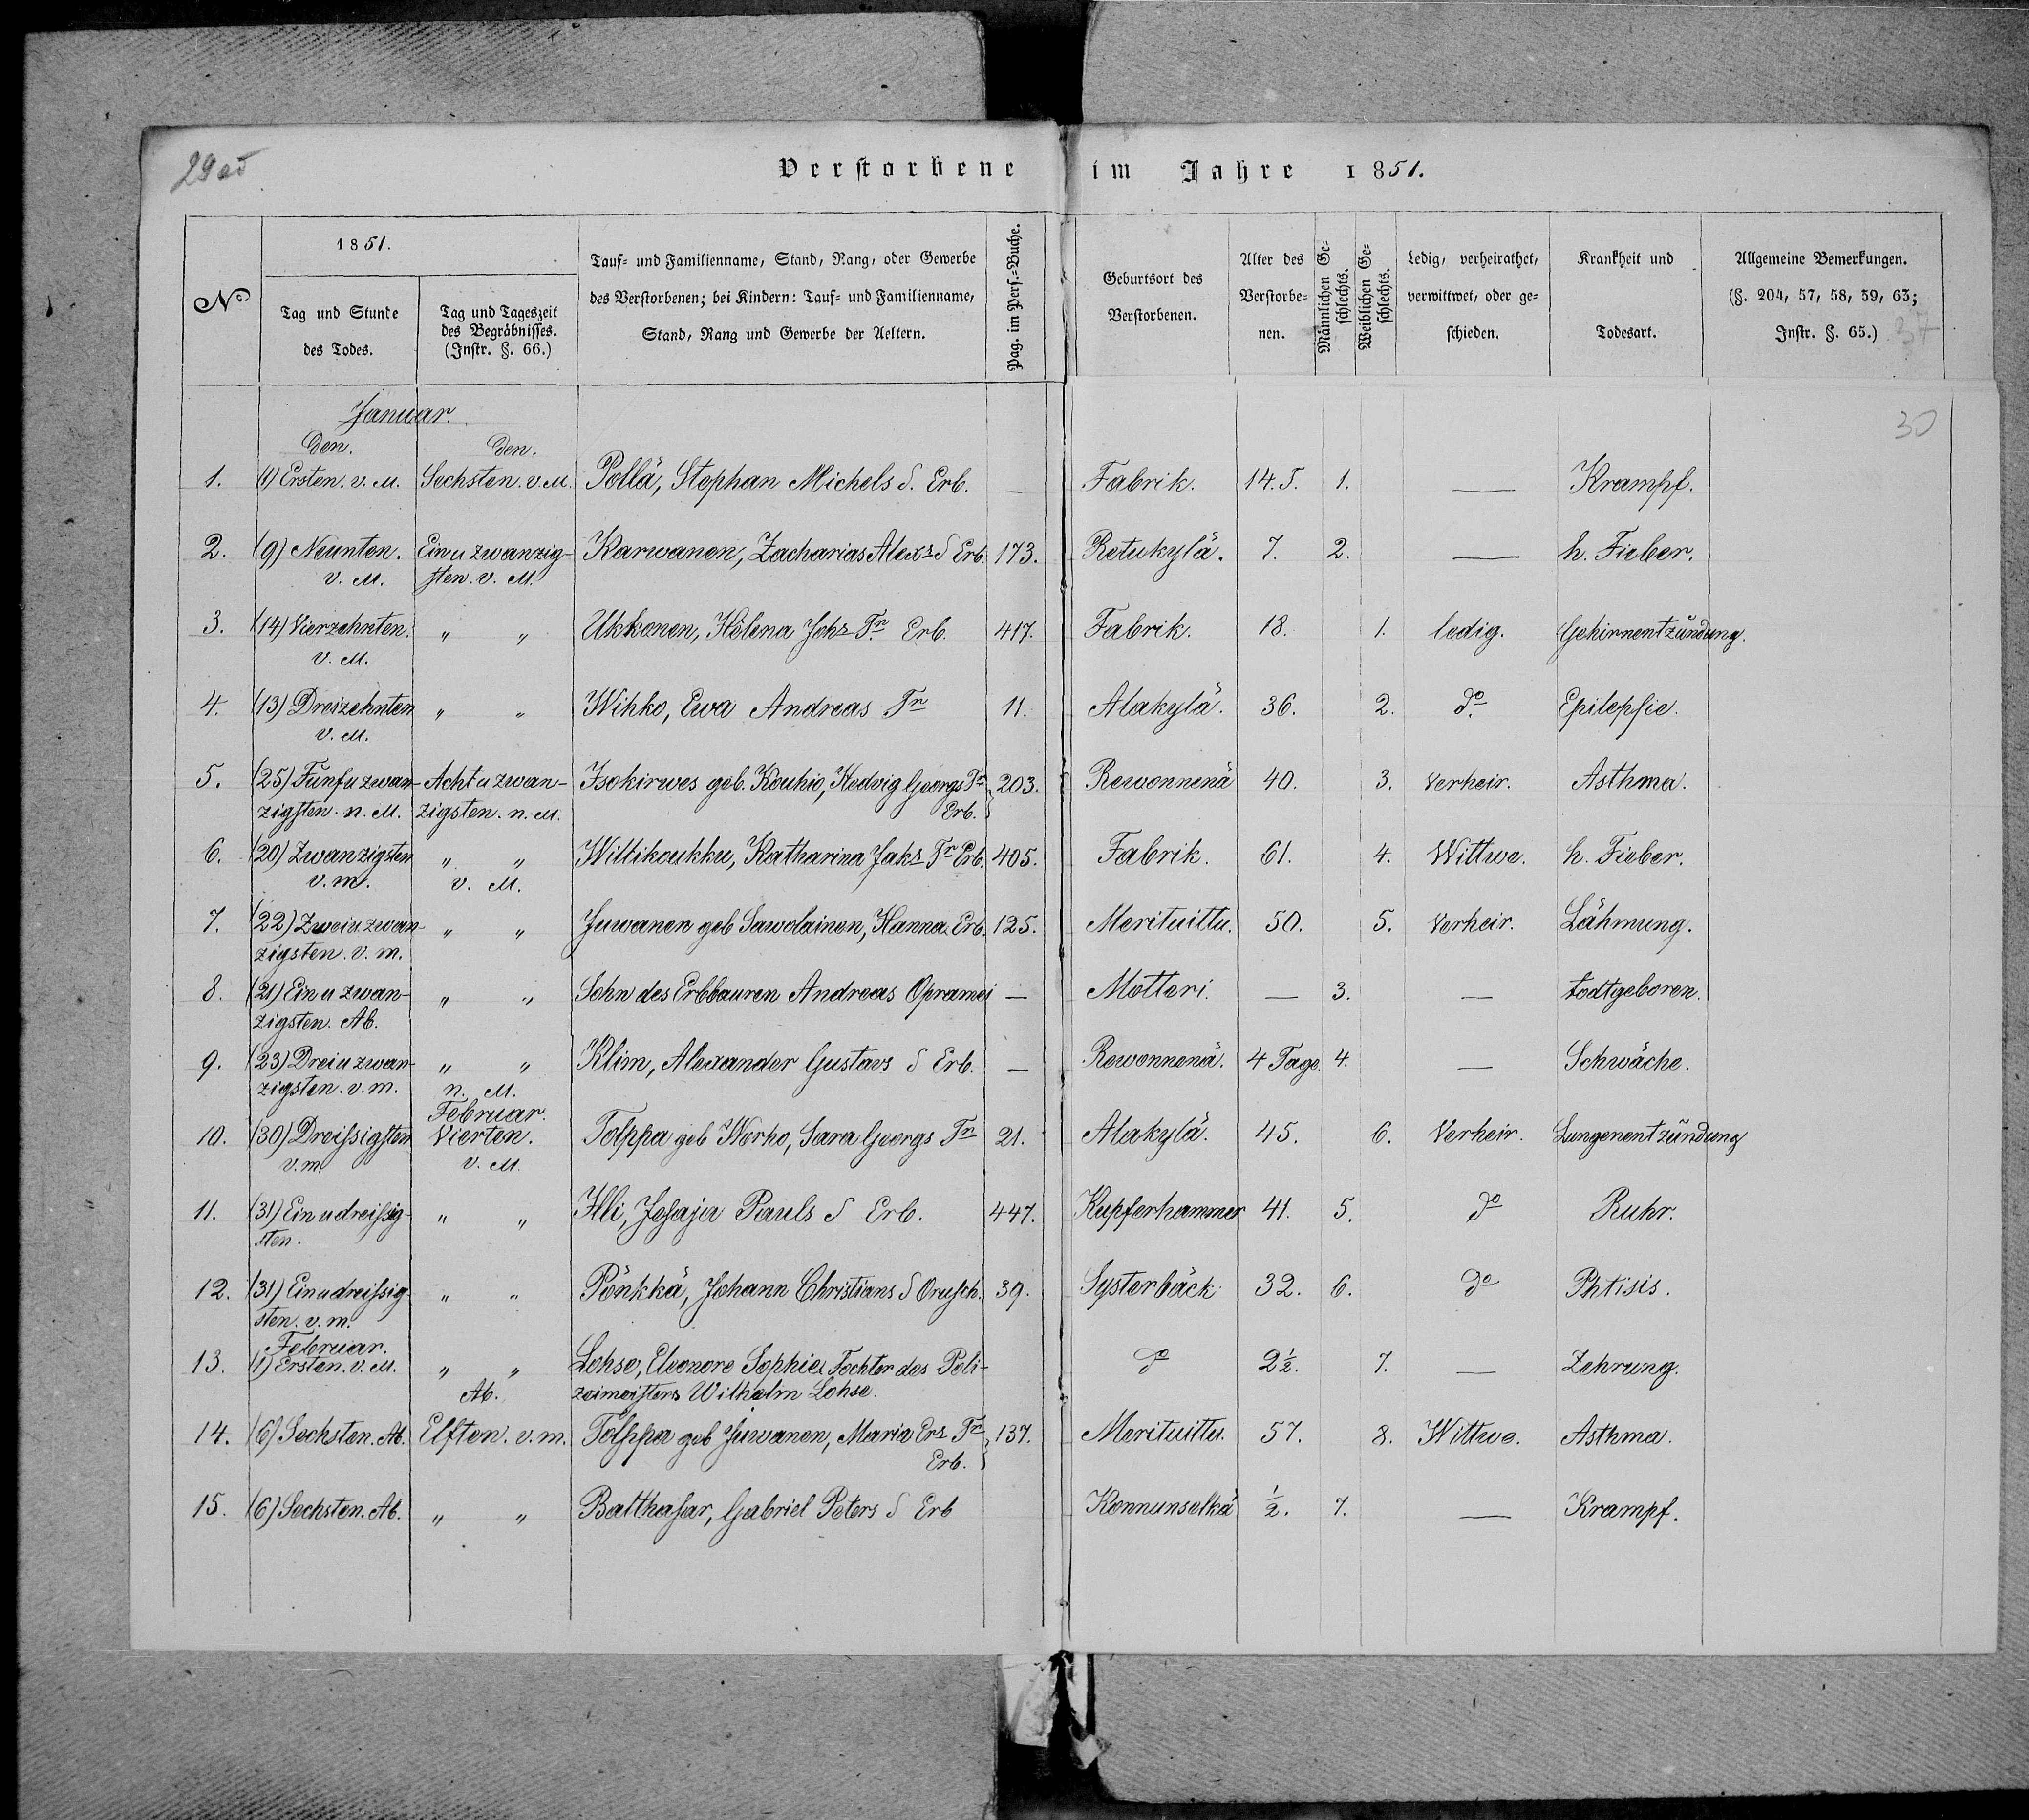 29 об
Verstorbene im Jahre 1851.
No
1851.
Tag und Stunde des Todes.
Tag und Tageszeit des Begräbnisses. (Instr. §. 66.)
Tauf- und Familienname, Stand, Rang, oder Gewerbe des Verstorbenen; bei Kindern: Tauf- und Familienname, Stand, Rang und Gewerbe der Aeltern.
Pag. im Pers.-Buche.
Geburtsort des Verstorbenen.
Alter des Verstorbenen.
Männlichen Geschlechts.
Weiblichen Geschlechts.
Ledig, verheirathet, verwittwet, oder geschieden.
Krankheit und Todesart.
Allgemeine Bemerkungen. (§. 204, 57, 58, 59, 63; Instr. §. 65.)
37
30
Januar.
Den. Den.
1. (1) Ersten. v. M. Sechsten. v. M. Pollä, Stephan Michels S. Erb. — Fabrik. 14. T. 1. — Krampf.
2. (9) Neunten. Ein u zwanzig- Karwanen, Zacharias Alexs S Erb. 173. Retukylä. 7. 2. — h. Fieber.
v. M. sten. v. M.
3. (14) Vierzehnten. " " Ukkonen, Helena Johs Tr Erb. 417. Fabrik. 18. 1. ledig. Gehirnentzündung.
v. M.
4. (13) Dreizehnten " " Wihko, Ewa Andreas Tr 11. Alakylä. 36. 2. do Epilepsie.
v. M.
5. (25) Fünf u zwan- Acht u zwan- Isokirwes geb. Koukio, Hedvig Georgs Tr 203. Rewonnenä 40. 3. Verheir. Asthma.
zigsten. n. M. zigsten. n. M. Erb.
6. (20) Zwanzigsten " " Wiltikoukku, Katharina Jaks Tr Erb. 405. Fabrik. 61. 4. Wittwe. h. Fieber.
v. m. v. M.
7. (22) Zwei u zwan- " " Juwanen geb Sawolainen, Hanna Erb. 125. Merituittu. 50. 5. Verheir. Lähmung.
zigsten. v. m.
8. (21) Ein u zwan- " " Sohn des Erbbauren Andreas Opramei — Motteri. — 3. — todtgeboren.
zigsten. Ab.
9. (23) Drei u zwan- " " Klim, Alexander Gustavs S Erb. — Rewonnenä. 4 Tage. 4. — Schwäche.
zigsten. v. m. n. M.
Februar.
10. (30) Dreissigsten Vierten. Tolppa geb Werho, Sara Georgs Tr 21. Alakylä. 45. 6. Verheir. Lungenentzündung
v. m. v. M.
11. (31) Ein u dreissig- " " Hli, Jesaja Pauls S Erb. 447. Kupferhammer 41. 5. do Ruhr.
sten.
12. (31) Ein u dreissig- " " Pönkkä, Johann Christians S Orusch. 39. Systerbäck 32. 6. do Phtisis.
sten. v. m.
Februar.
13. (1) Ersten. v. M. " " Lohse, Eleonore Sophie, Tochter des Poli- do 2½. 7. — Zehrung.
Ab. zeimeisters Wilhelm Lohse.
14. (6) Sechsten. Ab. Elften. v. m. Tolppa geb Juwanen, Maria Ers Tr 137. Merituittu. 57. 8. Wittwe. Asthma.
Erb.
15. (6) Sechsten. Ab. " " Balthasar, Gabriel Peters S Erb Konnunselkä ½. 7. — Krampf.